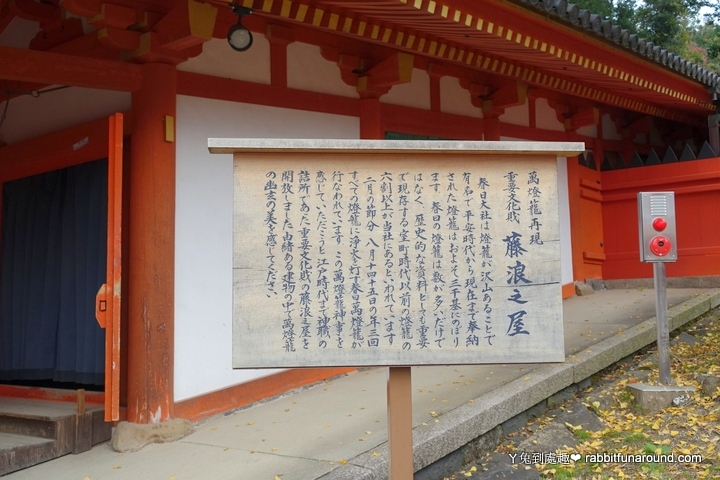 萬燈籠再現
重要文化財 藤浪之屋
春日大社は燈籠が沢山あることで
有名で平安時代から現在まで奉納
された燈籠はおよそ三千基にのぼり
ます。春日の燈籠は数が多いだけで
はなく、歴史的な資料としても重要
で現存する室町時代以前の燈籠の
六割以上が当社にあるといわれています
二月の節分 八月十四十五日の年三回
すべての燈籠に浄火を灯す春日萬燈籠が
行なわれています この萬燈籠神事を
感じていただこうと江戸時代まで神職の
詰所であった重要文化財の藤浪之屋を
開放しました 由緒ある建物の中で萬燈籠
の幽玄の美を感じてください
ㄚ兔到處趣❤ rabbitfunaround.com